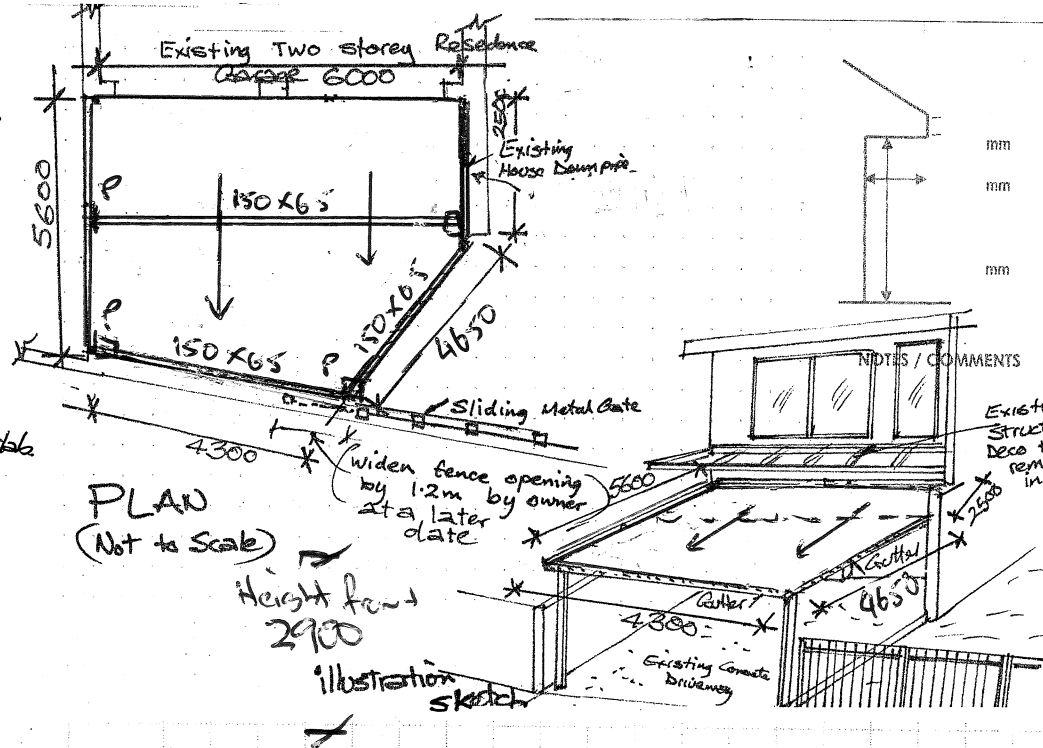 Existing Two storey Resedence
Garage 6000
5600
2500
Existing
House Downpipe
P
150 x 65
P
150 x 65
P
150 x 65
4650
Sliding Metal Gate
4300
widen fence opening
by 1.2m by owner
at a later
date
PLAN
(Not to Scale)
Height front
2900
illustration
sketch
mm
mm
mm
NOTES / COMMENTS
Deco
rem
in
5600
2500
Gutter
4650
Gutter
4300
Existing Concrete
Driveway